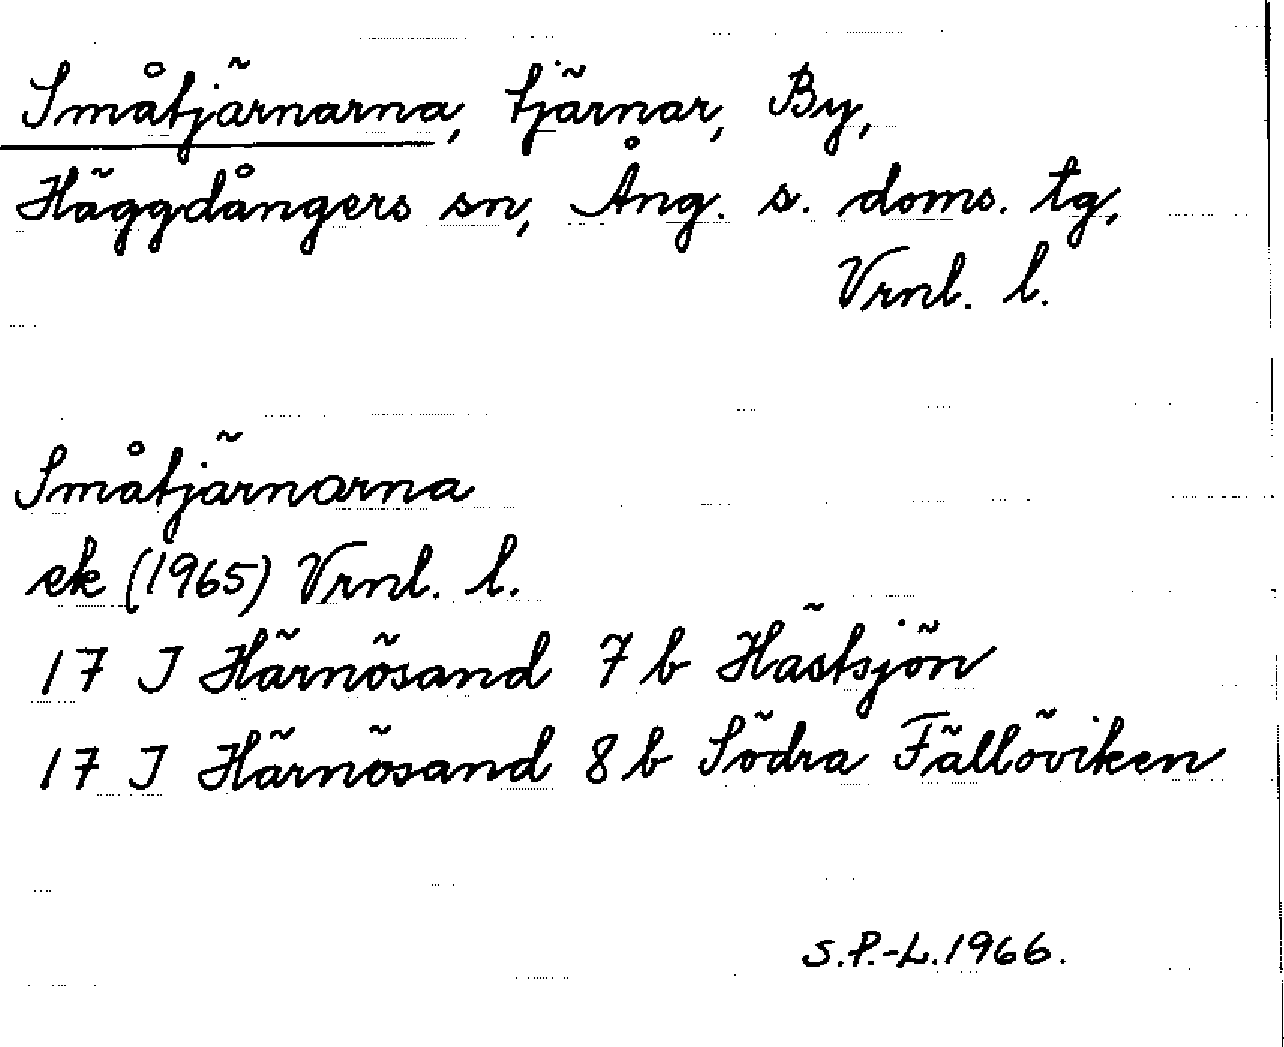 Småtjärnarna, tjärnar, By,
Häggdångers sn, Ång. s. doms. tg,
Vrnl. l.
Småtjärnarna
ek (1965) Vrnl. l.
17 I Härnösand 7 b Hästsjön
17 I Härnösand 8 b Södra Fällöviken
S.P.-L. 1966.